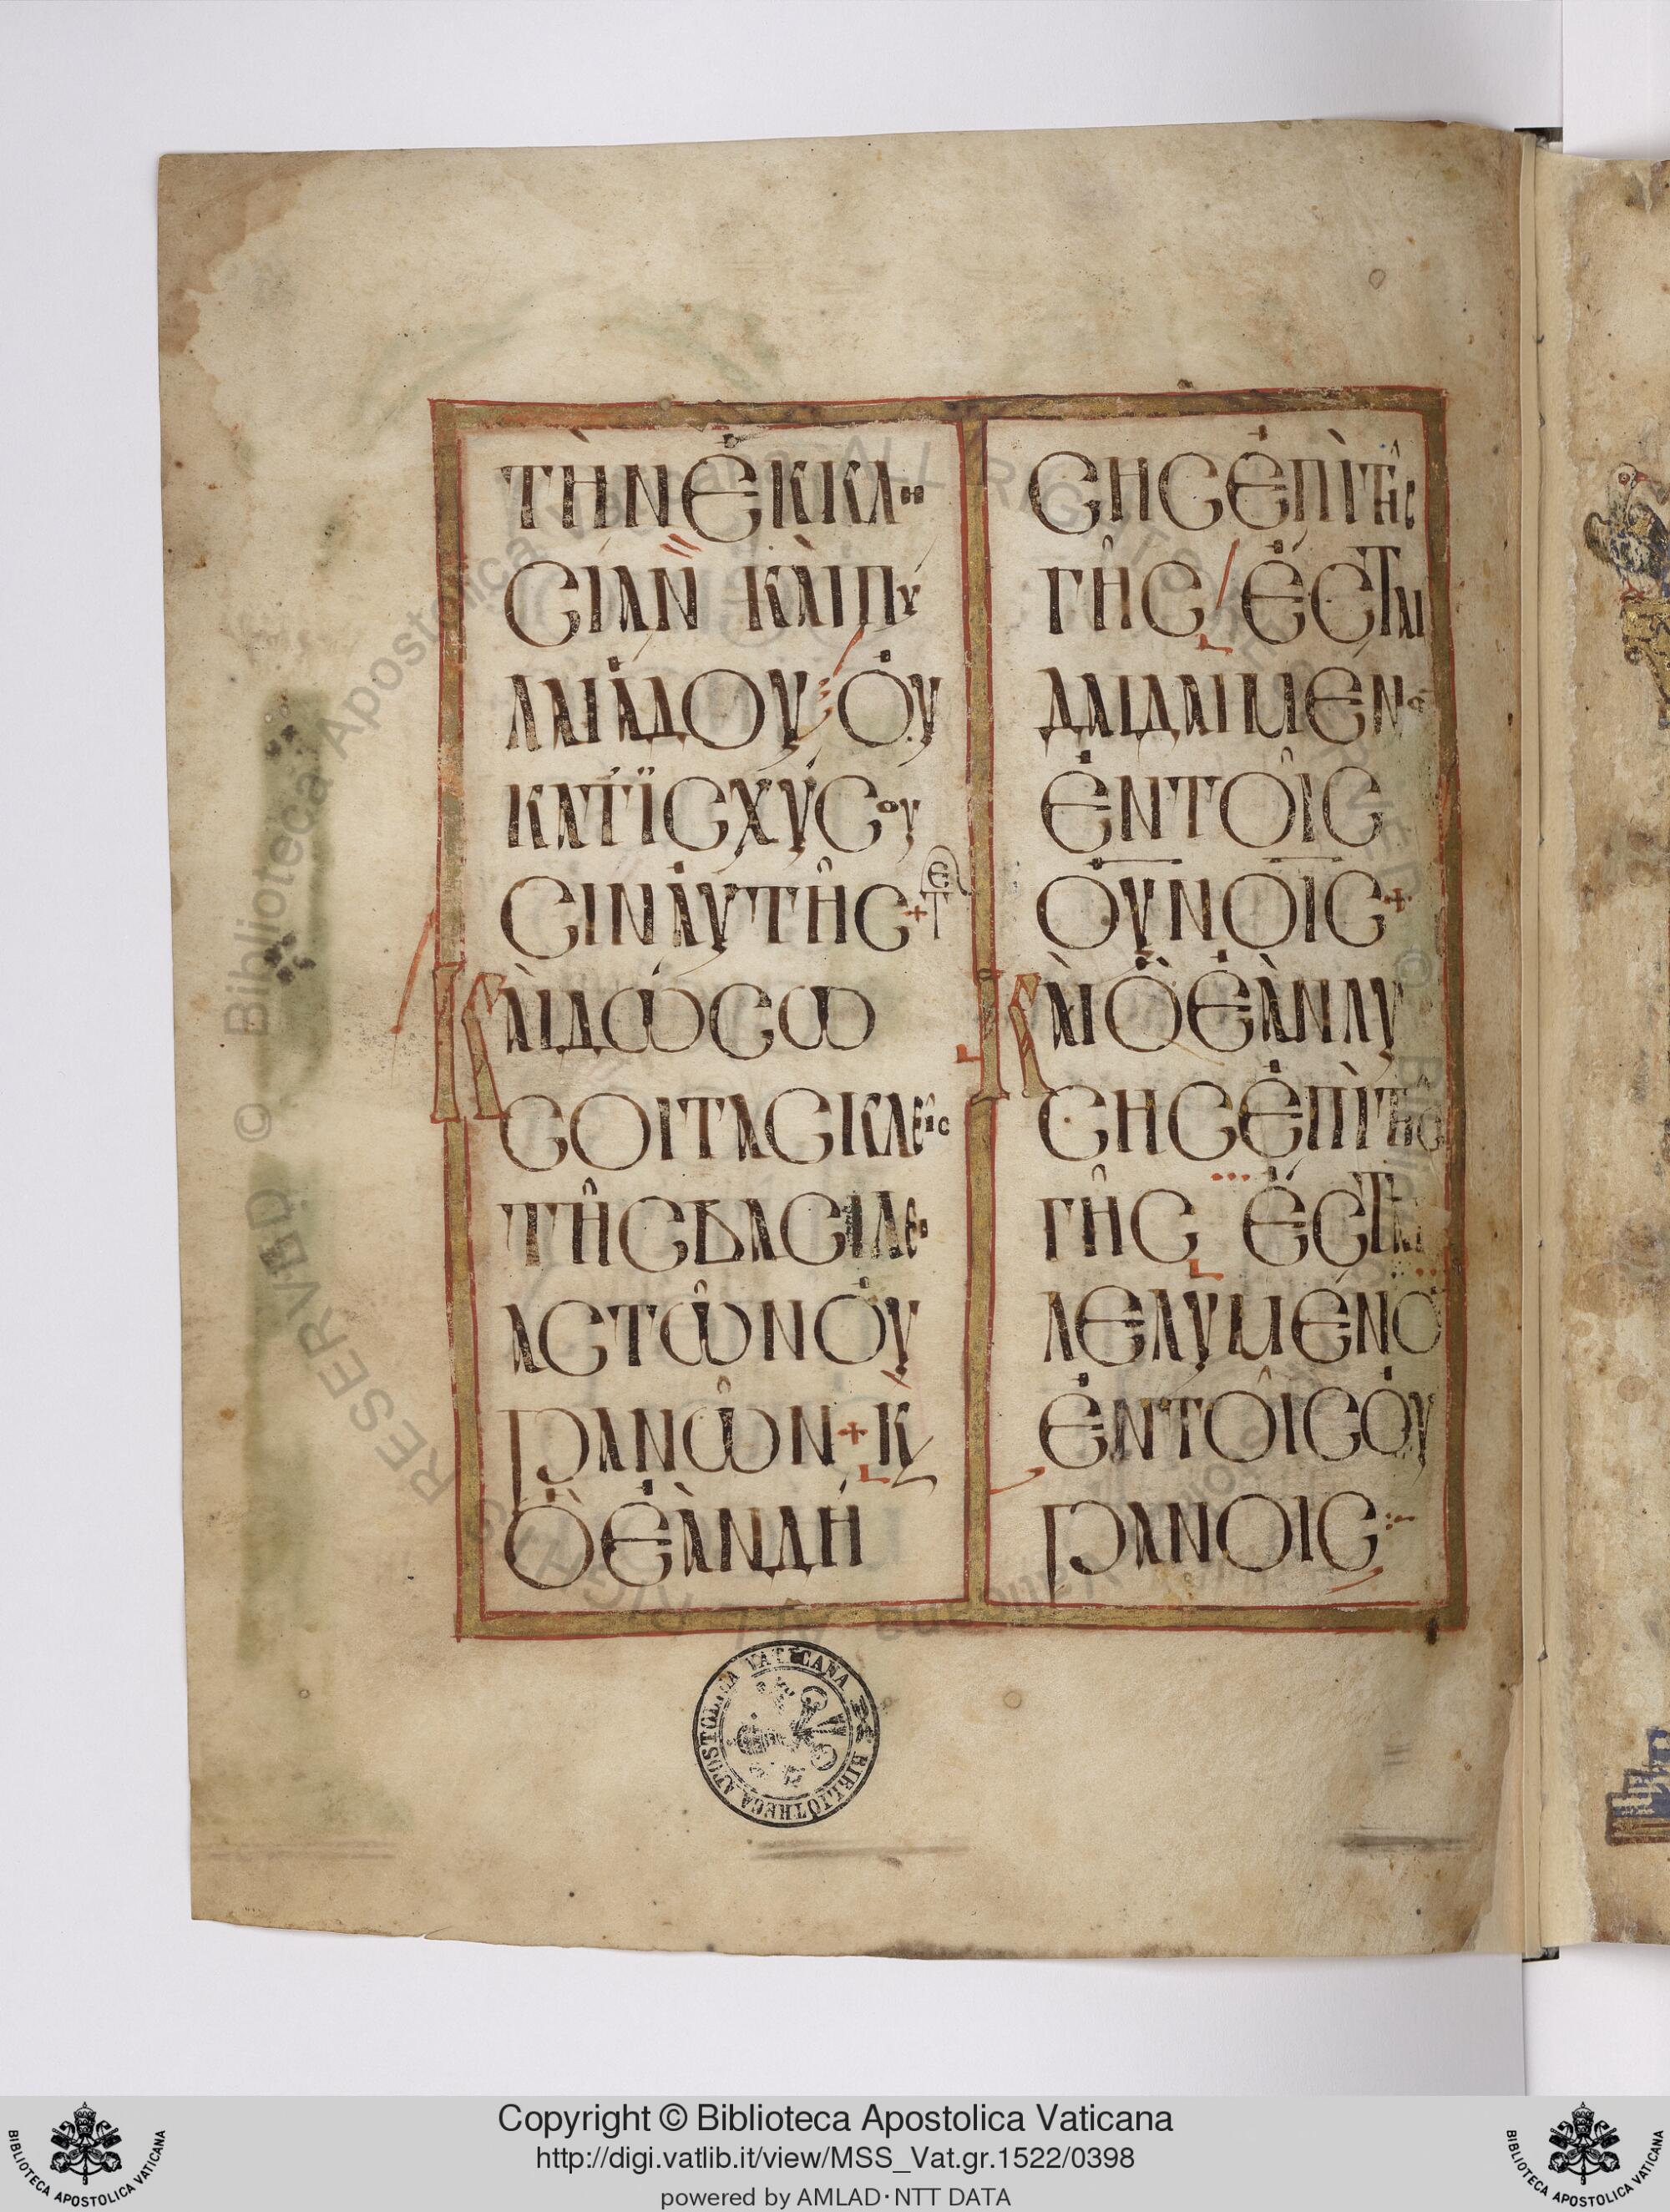 ΤῊΝἘΚΚΛΗ
ΣΊΑΝ ΚΑῚΠΥ
ΛΑΙἍΔΟΥ ΟΥ̓
ΚΑΤΪΣΧΎΣΟΥ
ΣΙΝΑΥ̓ΤΗ͂Σ+
ΚΑῚΔΏΣΩ
ΣΟΙΤΑΣΚΛΕῖΣ
ΤΗ͂ΣΒΑΣΙΛΕΙ
ΑΣΤΩ͂ΝΟΥ̓
ΡΑΝΩ͂Ν+Κ
ὋἘᾺΝΔΉ
ΣΗΣἘΠῚΤΗ͂Σ
ΓΗ͂Σ ἜΣΤΑΙ
ΔΑΙΔΑΙΜΕΝΟ
ἘΝΤΟΙ͂Σ
ΟΥ̓ΝΟΙΣ+
ΚΑῚὋἘᾺΝΛΥ
ΣΗΣἘΠῚΤΗ͂Σ
ΓΗ͂Σ ἜΣΤΑΙ
ΛΕΛΥΜΈΝΟ
ἘΝΤΟΙ͂ΣΟΥ̓
ΡΑΝΟΙΣ
BIBLIOTHECA APOSTOLICA VATICANA
Copyright © Biblioteca Apostolica Vaticana
http://digi.vatlib.it/view/MSS_Vat.gr.1522/0398
powered by AMLAD·NTT DATA
BIBLIOTECA APOSTOLICA VATICANA
BIBLIOTECA APOSTOLICA VATICANA